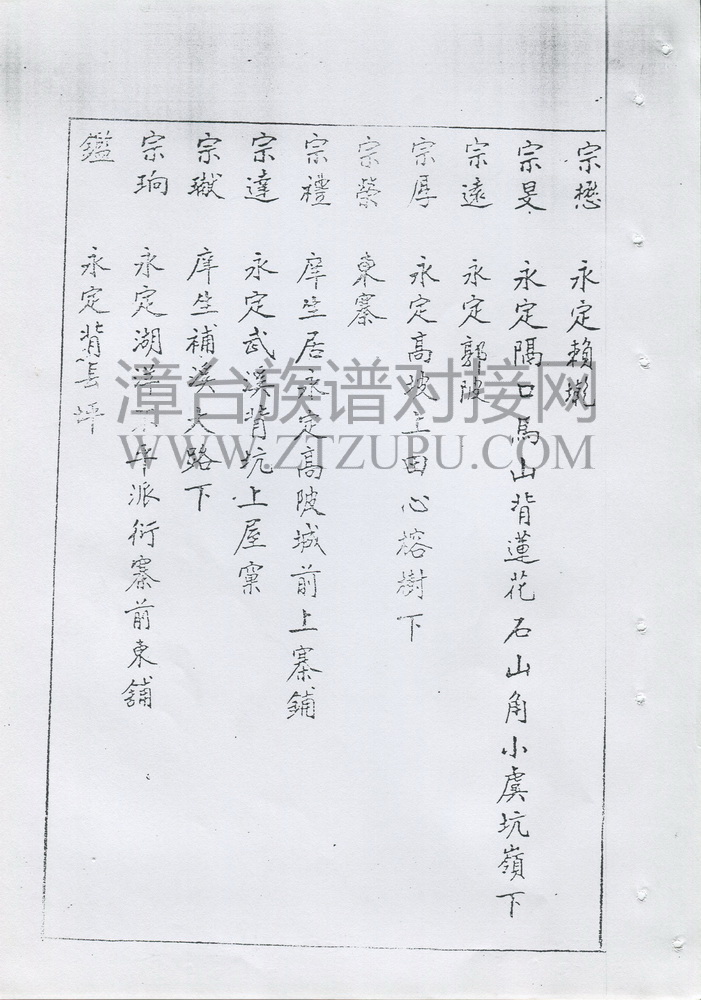 宗懋 永定賴坑
宗旻 永定隔口馬山背蓮花石山角小虞坑嶺下
宗遠 永定郭陂
宗厚 永定高坡立田心榕樹下
宗榮 東寨
宗禮 庠生居永定高陂城前上寨鋪
宗達 永定武溪背坑上屋窠
宗瑊 庠生補溪大路下
宗珦 永定湖洋派衍寨前東舖
鑑 永定背坪
漳台族谱对接网
WWW.ZTZUPU.COM